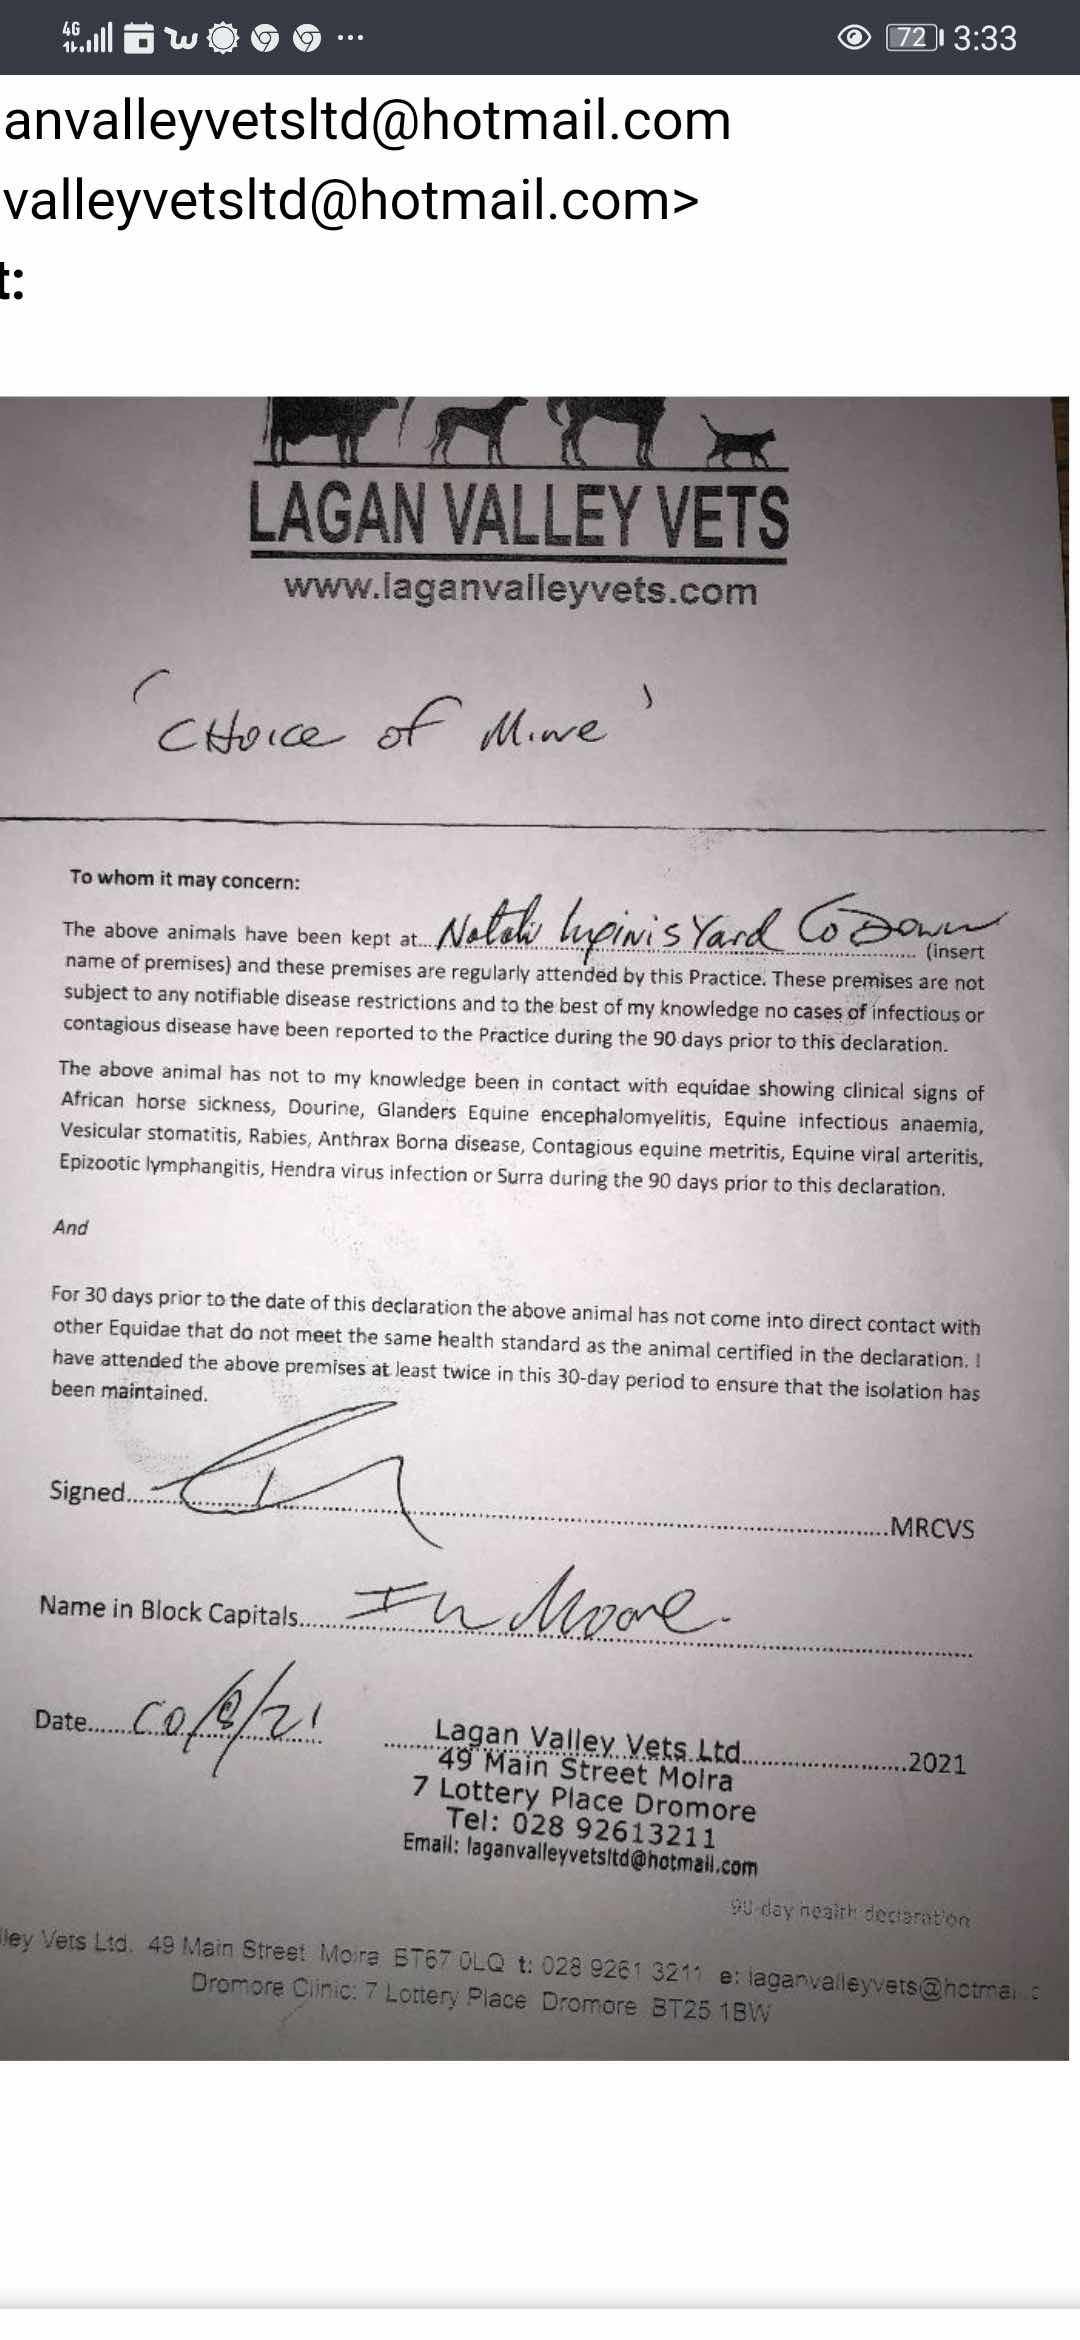 4G 72 3:33
anvalleyvetsltd@hotmail.com
valleyvetsltd@hotmail.com>
t:
LAGAN VALLEY VETS
www.laganvalleyvets.com
'CHoice of Mine'
To whom it may concern:
The above animals have been kept at... Yard Co Down
(insert
name of premises) and these premises are regularly attended by this Practice. These premises are not
subject to any notifiable disease restrictions and to the best of my knowledge no cases of infectious or
contagious disease have been reported to the Practice during the 90 days prior to this declaration.
The above animal has not to my knowledge been in contact with equidae showing clinical signs of
African horse sickness, Dourine, Glanders Equine encephalomyelitis, Equine infectious anaemia,
Vesicular stomatitis, Rabies, Anthrax Borna disease, Contagious equine metritis, Equine viral arteritis,
Epizootic lymphangitis, Hendra virus infection or Surra during the 90 days prior to this declaration.
And
For 30 days prior to the date of this declaration the above animal has not come into direct contact with
other Equidae that do not meet the same health standard as the animal certified in the declaration. I
have attended the above premises at least twice in this 30-day period to ensure that the isolation has
been maintained.
Signed...MRCVS
Name in Block Capitals... Moore.
Date...
...2021
Lagan Valley Vets Ltd
49 Main Street Moira
7 Lottery Place Dromore
Tel: 028 92613211
Email: laganvalleyvetsltd@hotmail.com
90-day health declaration
lley Vets Ltd. 49 Main Street Moira BT67 0LQ t: 028 9261 3211 e: laganvalleyvets@hotmai.c
Dromore Clinic: 7 Lottery Place Dromore BT25 1BW